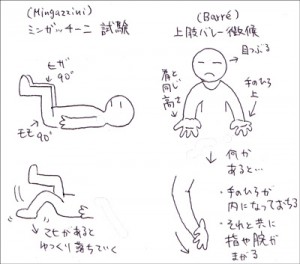 (Mingazzini)
ミンガッチーニ 試験
ヒザ
90°
モモ 90°
↓
マヒがあると
ゆっくり落ちていく
(Barré)
上肢バレー徴候
目つぶる
肩と
同じ
高さ
手のひら
上
↓
何か
あると…
・手のひらが
内になっておちる
・それと共に
指や腕が
まがる